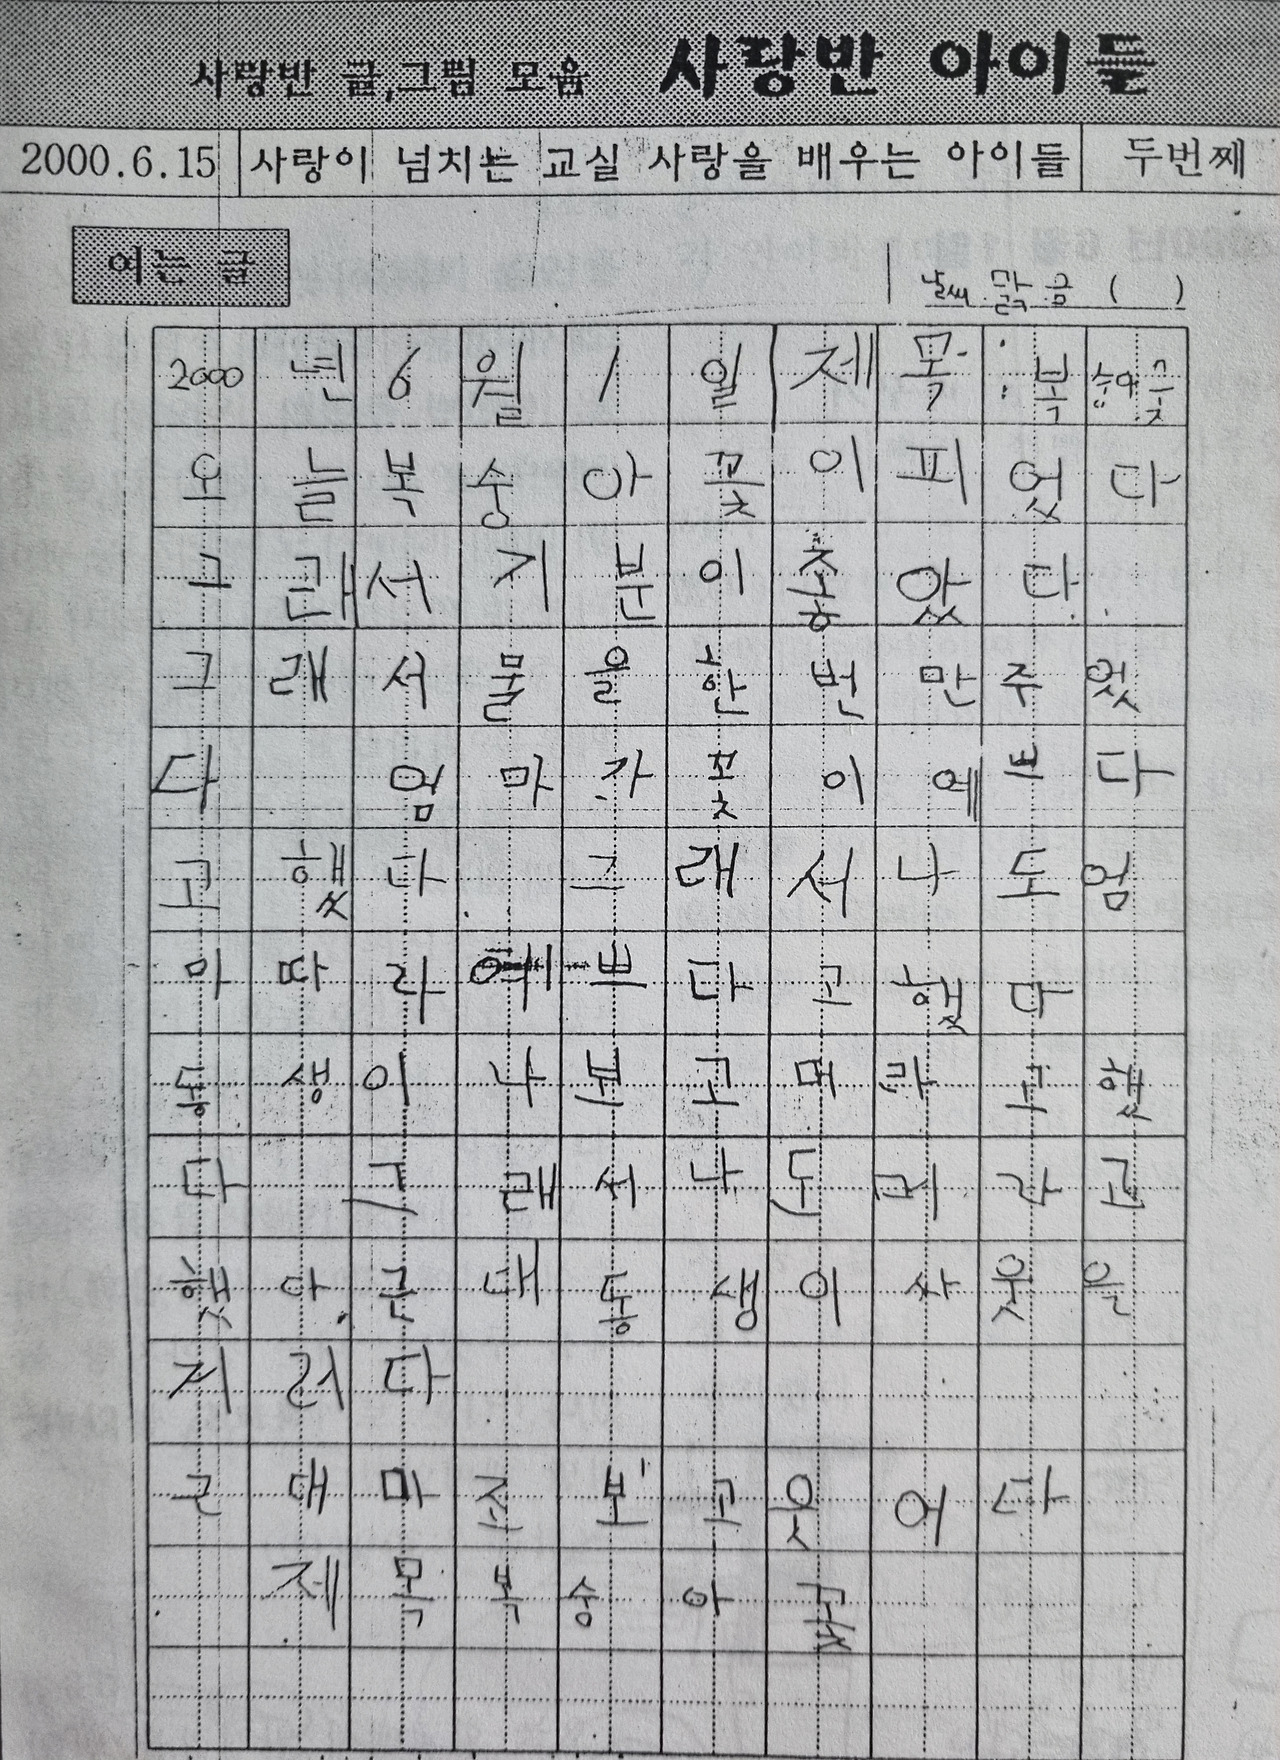 사랑반 글,그림 모음 사랑반 아이들
2000.6.15 사랑이 넘치는 교실 사랑을 배우는 아이들 두번째
여는 글
날씨 맑금 ( )
2000년 6월 1일 제목: 복숭아꽃
오늘복숭아꽃이피었다
그래서기분이좋았다.
그래서물을한번만주었
다 엄마가꽃이예쁘다
고했다. 그래서나도엄
마따라예쁘다고했다
동생이나보고메라구했
다 그래서나도메라고
했다.근대동생이싸웃을
지러다
근대마주보고웃어다
제목복숭아꽃